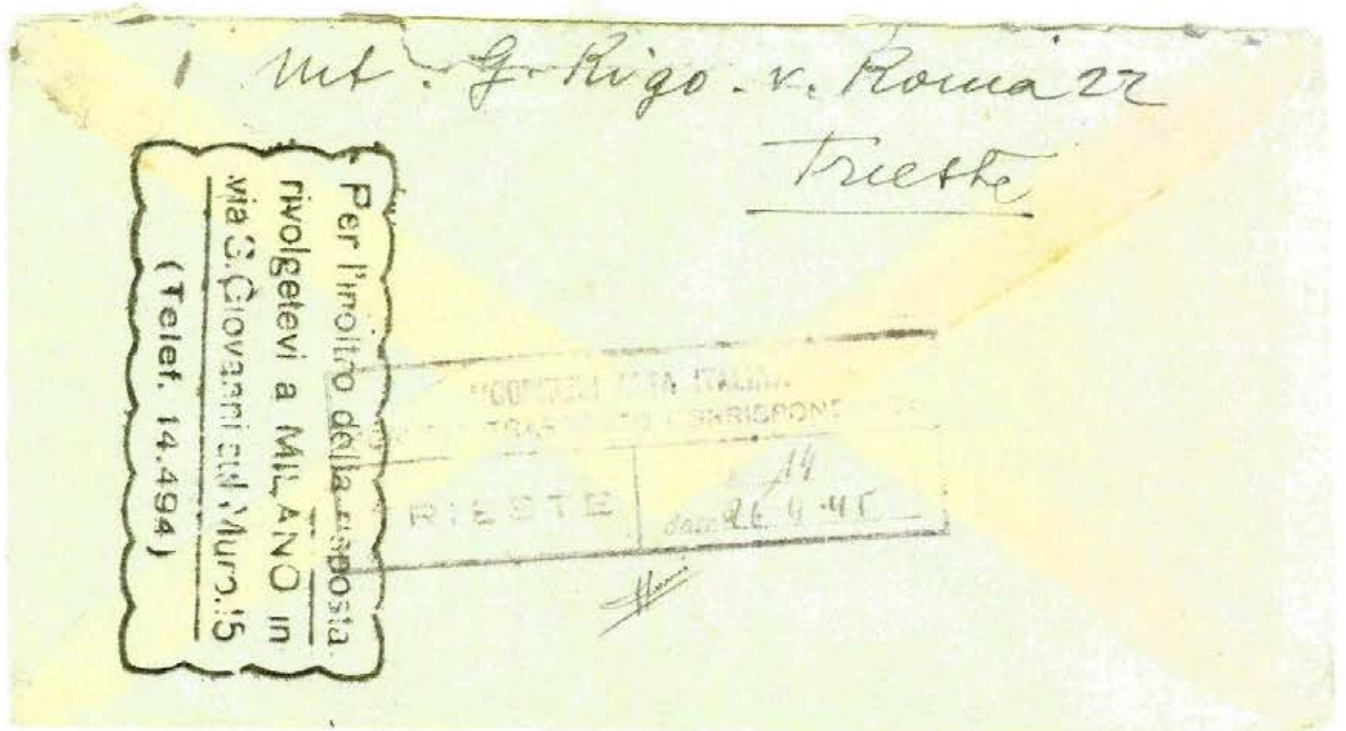 Mt. G. Rigo. v. Roma 22
Trieste
Per l'inoltro della risposta
rivolgetevi a MILANO in
via S. Giovanni sul Muro.15
(Telef. 14.494)
ALTA ITALIA
TRASPORTO CORRISPONDENZE
TRIESTE
14
data 26 4 45